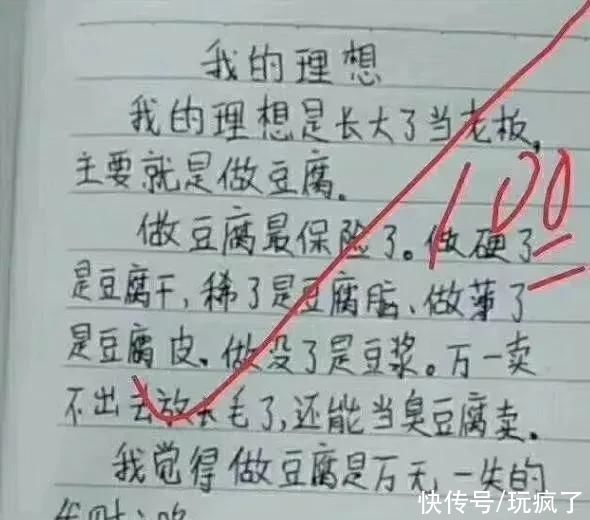 我的理想
我的理想是长大了当老板,
主要就是做豆腐。
做豆腐最保险了。做硬了
是豆腐干,稀了是豆腐脑、做薄了
是豆腐皮、做没了是豆浆。万一卖
不出去放长毛了,还能当臭豆腐卖。
我觉得做豆腐是万无一失的
100
快传号/玩疯了